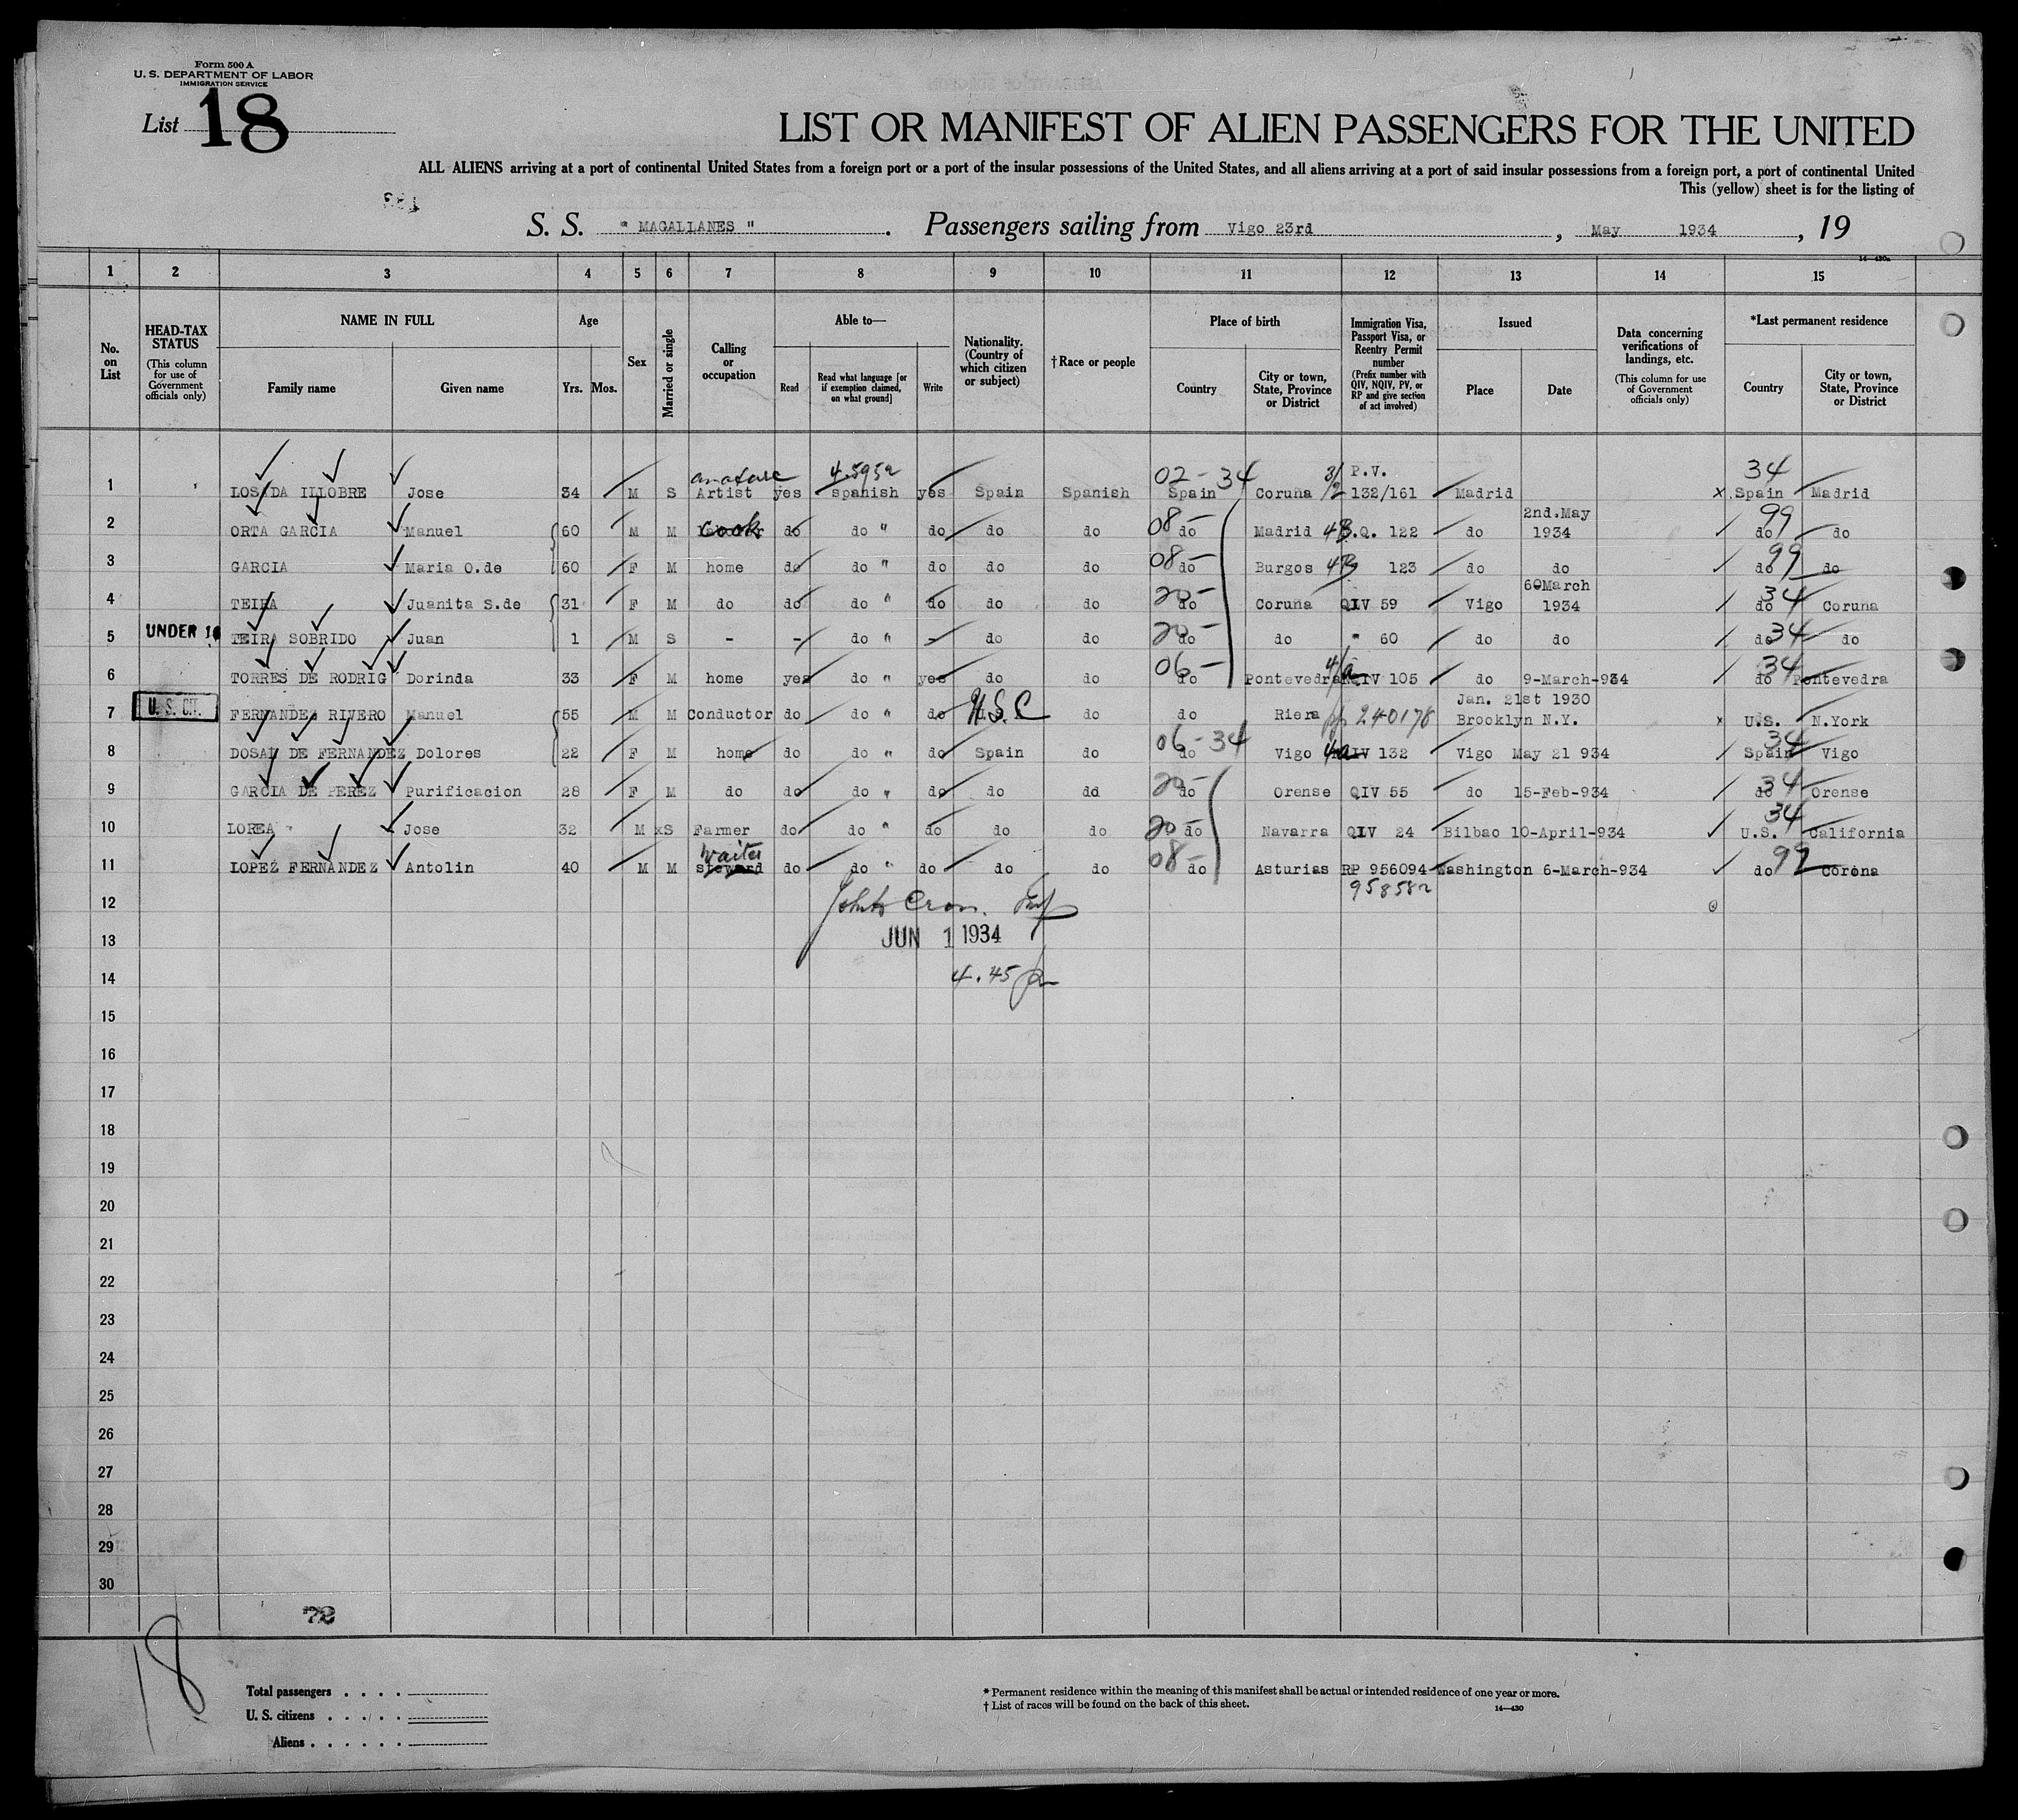 Form 500 A
U. S. DEPARTMENT OF LABOR
IMMIGRATION SERVICE
List 18
LIST OR MANIFEST OF ALIEN PASSENGERS FOR THE UNITED
ALL ALIENS arriving at a port of continental United States from a foreign port or a port of the insular possessions of the United States, and all aliens arriving at a port of said insular possessions from a foreign port, a port of continental United
This (yellow) sheet is for the listing of
S. S. " MAGALLANES ". Passengers sailing from Vigo 23rd, May 1934, 19
14-430a
1 2 3 4 5 6 7 8 9 10 11 12 13 14 15
No. on List
HEAD-TAX STATUS (This column for use of Government officials only)
NAME IN FULL Family name Given name
Age Yrs. Mos.
Sex
Married or single
Calling or occupation
Able to— Read Read what language [or if exemption claimed, on what ground] Write
Nationality. (Country of which citizen or subject)
†Race or people
Place of birth Country City or town, State, Province or District
Immigration Visa, Passport Visa, or Reentry Permit number (Prefix number with QIV, NQIV, PV, or RP and give section of act involved)
Issued Place Date
Data concerning verifications of landings, etc. (This column for use of Government officials only)
*Last permanent residence Country City or town, State, Province or District
02-34 3/2 P.V. 34
1 LOSADA ILLOBRE Jose 34 M S Artist yes spanish yes Spain Spanish Spain Coruna 132/161 Madrid x Spain Madrid
08- 2nd.May 99
2 ORTA GARCIA Manuel 60 M M cook do do " do do do do Madrid 4B .Q. 122 do 1934 do do
08- 99
3 GARCIA Maria O.de 60 F M home do do " do do do do Burgos 123 do do do do
20- 60March 34
4 TEIRA Juanita S.de 31 F M do do do " do do do do Coruna QIV 59 Vigo 1934 do Coruna
20- 34
5 UNDER 16 TEIRA SOBRIDO Juan 1 M S - - do " - do do do do " 60 do do do do
06- 34
6 TORRES DE RODRIG Dorinda 33 F M home yes do " yes do do do Pontevedra QIV 105 do 9-March-934 do Pontevedra
Jan. 21st 1930
7 U. S. CIT. FERNANDEZ RIVERO Manuel 55 M M Conductor do do " do U.S.C do do Riera 240178 Brooklyn N.Y. x U.S. N.York
06-34 34
8 DOSAL DE FERNANDEZ Dolores 22 F M home do do " do Spain do do Vigo 4a IV 132 Vigo May 21 934 Spain Vigo
20- 34
9 GARCIA DE PEREZ Purificacion 28 F M do do do " do do do do Orense QIV 55 do 15-Feb-934 do Orense
20- 34
10 LOREA Jose 32 M xS Farmer do do " do do do do Navarra QIV 24 Bilbao 10-April-934 U.S. California
waiter 08- 99
11 LOPEZ FERNANDEZ Antolin 40 M M steward do do " do do do do Asturias RP 956094 Washington 6-March-934 do Corona
958582
12
13 JUN 1 1934
14 4.45
15
16
17
18
19
20
21
22
23
24
25
26
27
28
29
30
72
18
Total passengers . . . .
U. S. citizens . . . . .
Aliens . . . . . .
* Permanent residence within the meaning of this manifest shall be actual or intended residence of one year or more.
† List of races will be found on the back of this sheet.
14-430